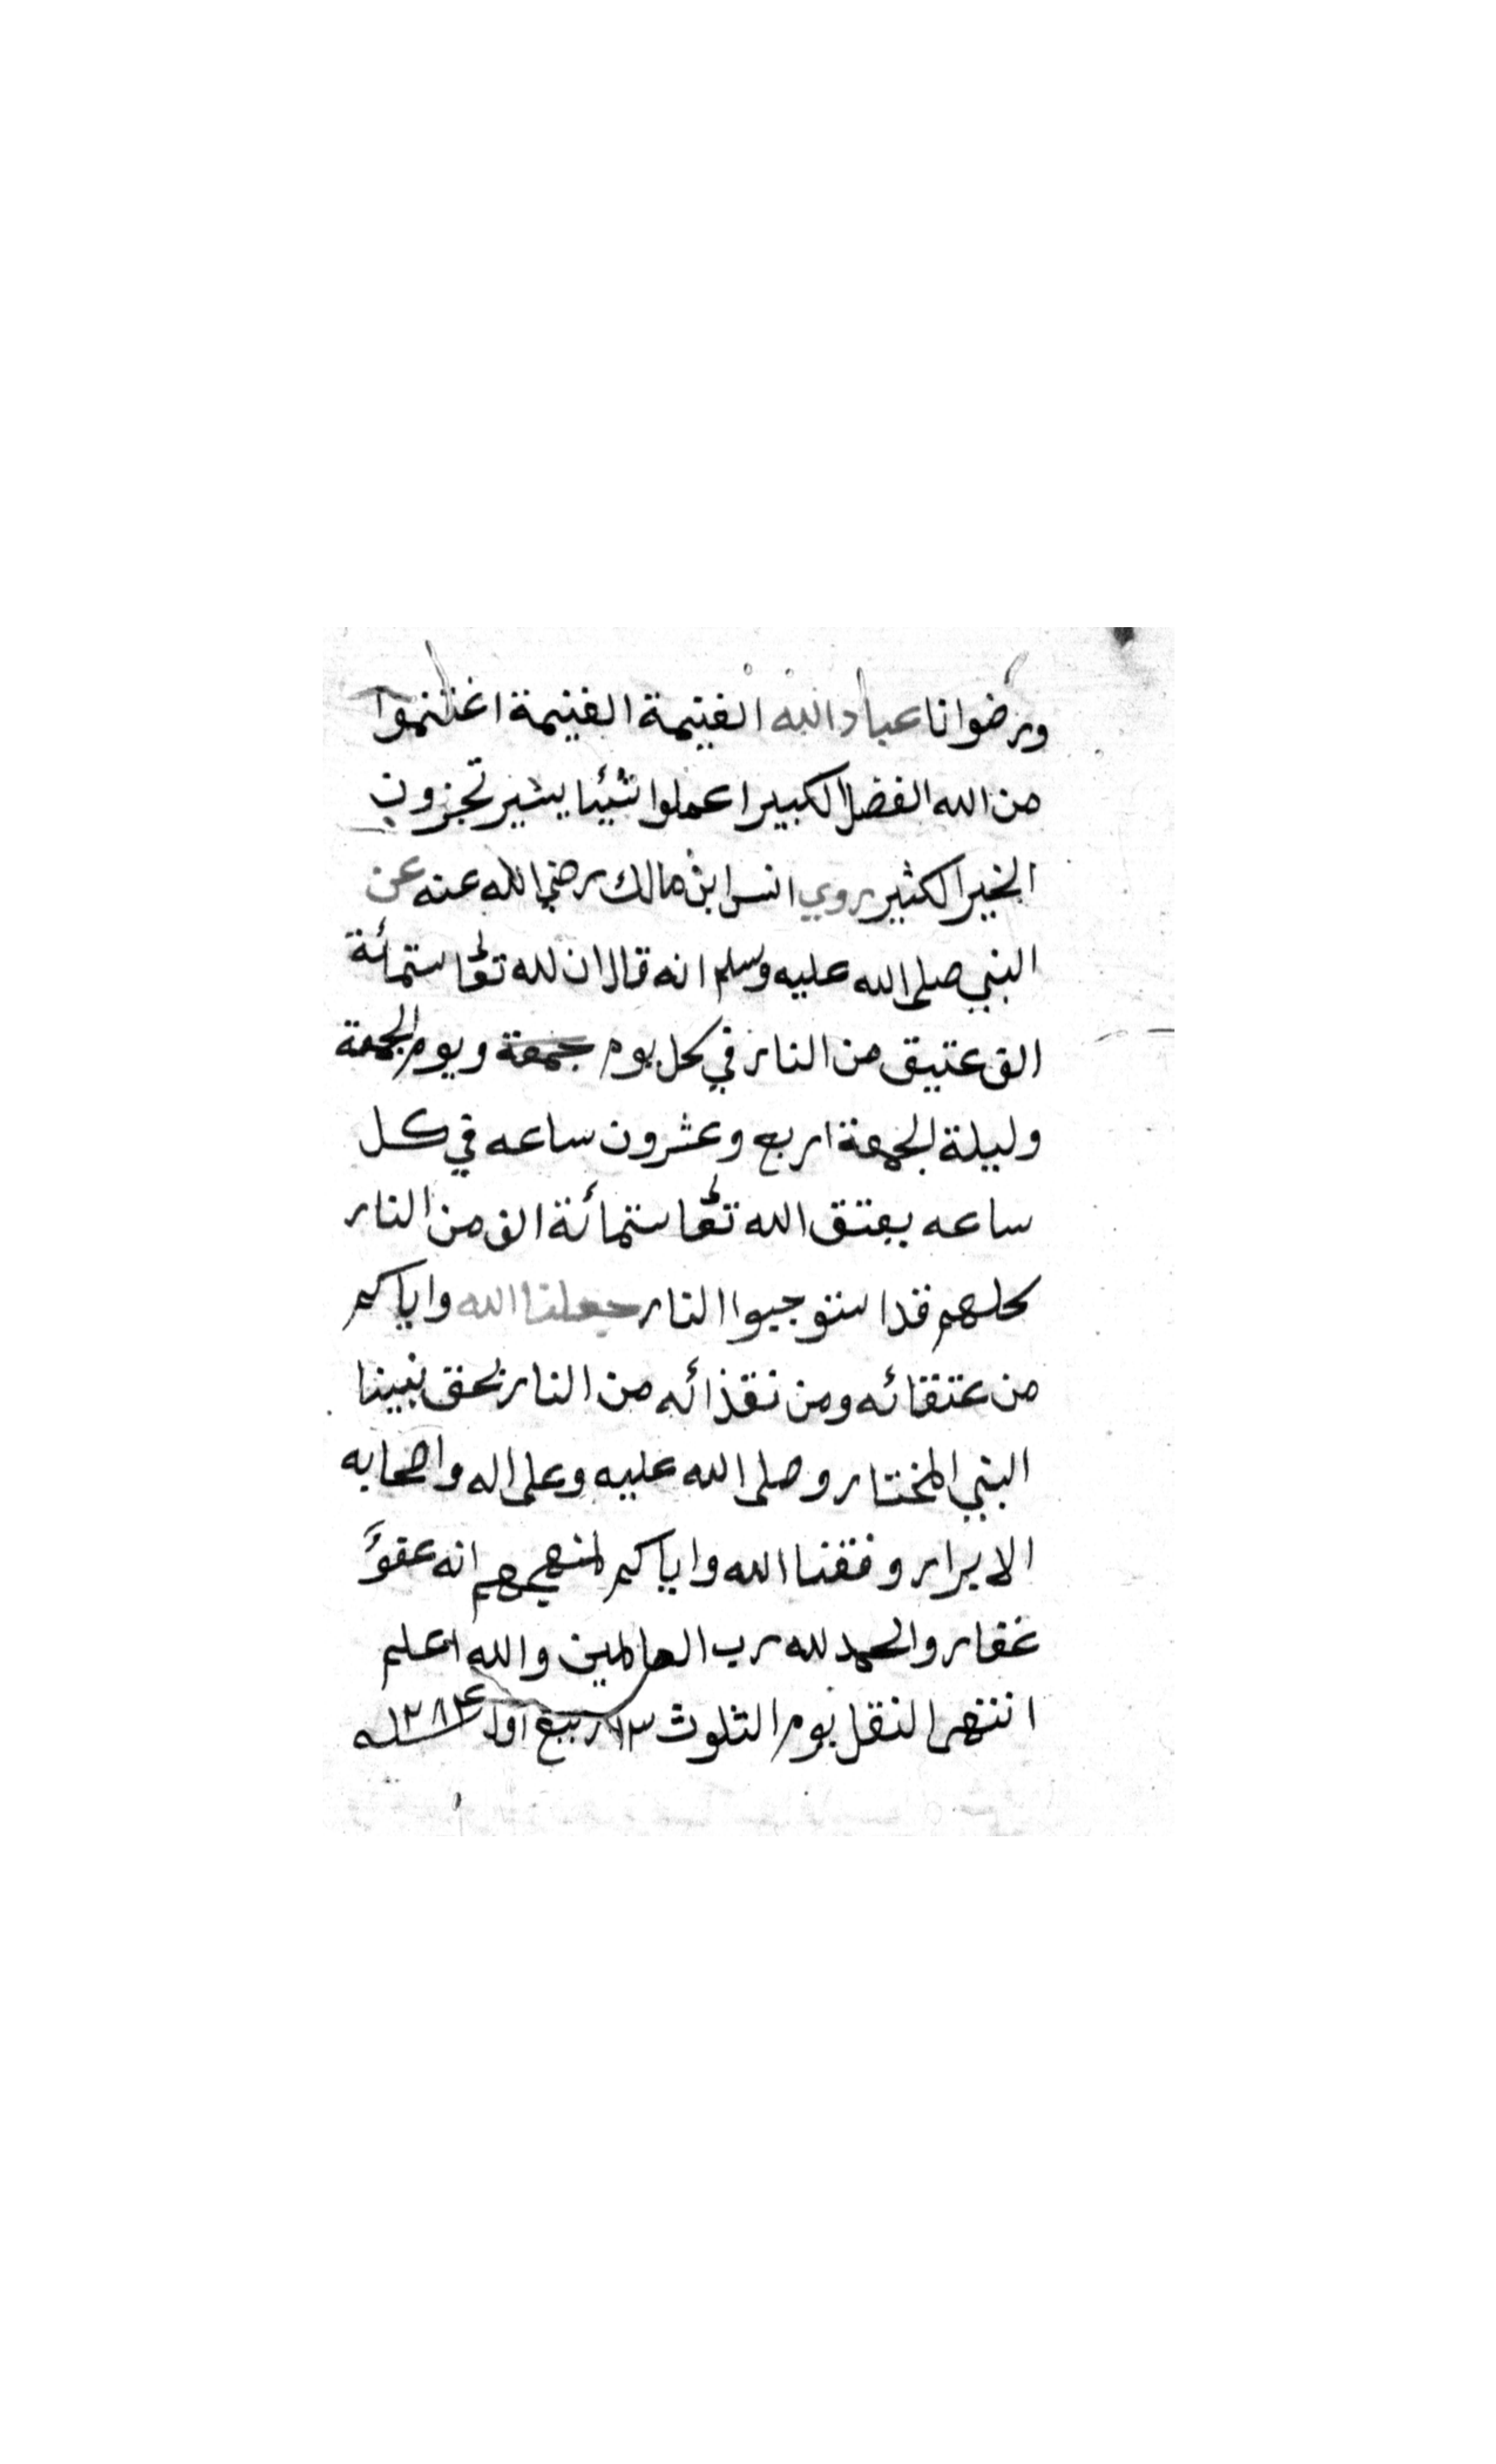 ورضوانا عباد الله الغنيمة الغنيمة اغتنموا
من الله الفضل الكبير اعملوا شيئا يسير تجزون
الخير الكثير روي انس ابن مالك رضي الله عنه عن
النبي صلى الله عليه وسلم انه قال ان لله تعالى ستمأئة
الف عتيق من النار في كل يوم جمعة ويوم الجمعة
وليلة الجمعة اربع وعشرون ساعه في كل
ساعه يعتق الله تعالى ستمأئة الف من النار
كلهم قد استوجبوا النار جعلنا الله واياكم
من عتقائه ومن نقذائه من النار بحق نبينا
النبي المختار وصلى الله عليه وعلى اله واصحابه
الابرار وفقنا الله واياكم لمنهجهم انه عفوٌ
غفار والحمد لله رب العالمين والله اعلم
انتهى النقل يوم الثلوث ١٣ ربيع اول سنه